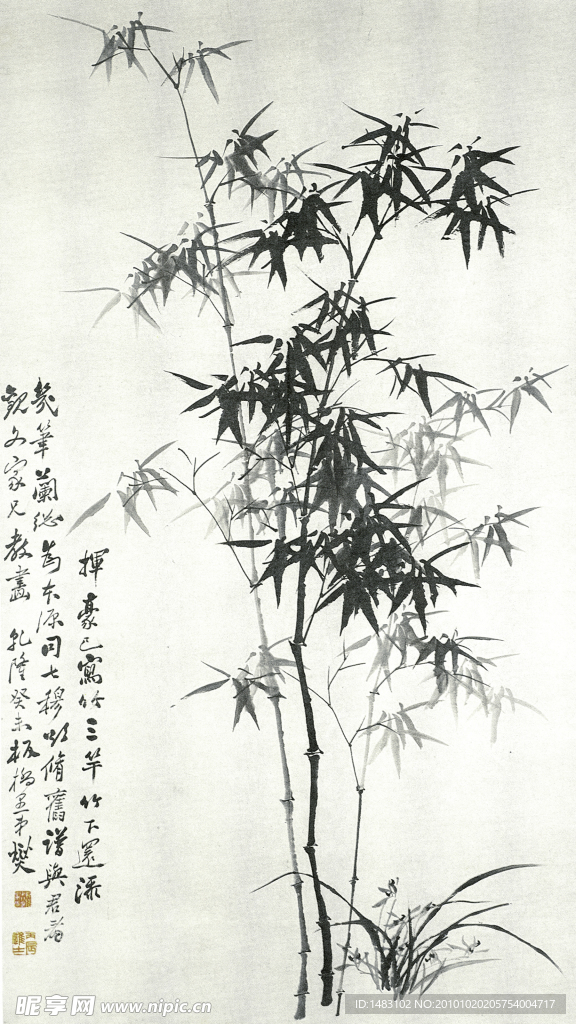 揮豪已寫竹三竿竹下還添
幾筆蘭緫為本源同七穆欲脩舊譜與君看
觀文家兄教畫 乾隆癸未板橋愚弟燮
昵享网 www.nipic.cn
ID:1483102 NO:20101020205754004717